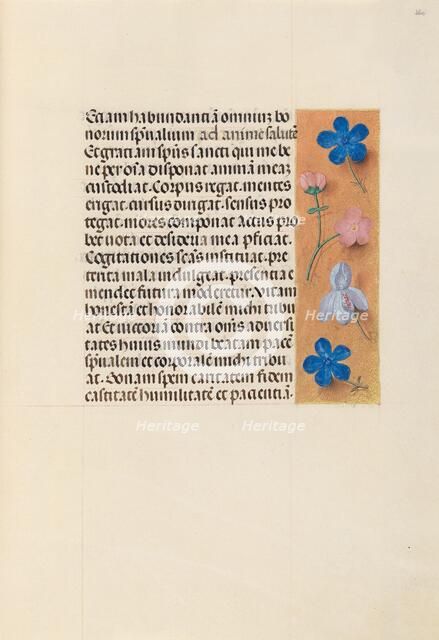 Et iam habundantiā omniuʒ bo
norum sp̄ualium ad anime salutē
Et gratiam sp̄us sancti qui me be
ne per oīa disponat animā meaʒ
custodiat. Corpus regat. mentes
erigat. cursus dirigat. sensus pro
tegat. mores componat Actus pro
bet vota et desideria mea pficiat.
Cogitationes sc̄as instituat. pre
terita mala indulgeat. presentia e
mendet futura moderetur. Vitam
honestā et honorabilē michi tribu
at Et victoriā contra om̄s aduersi
tates huius mundi beatam pacē
sp̄ualem et corporalē michi tribu
at. bonam spem caritatem fidem
castitatē humilitatē et pacientiā.
Heritage
Heritage
Heritage
Heritage
Heritage
Heritage
Heritage